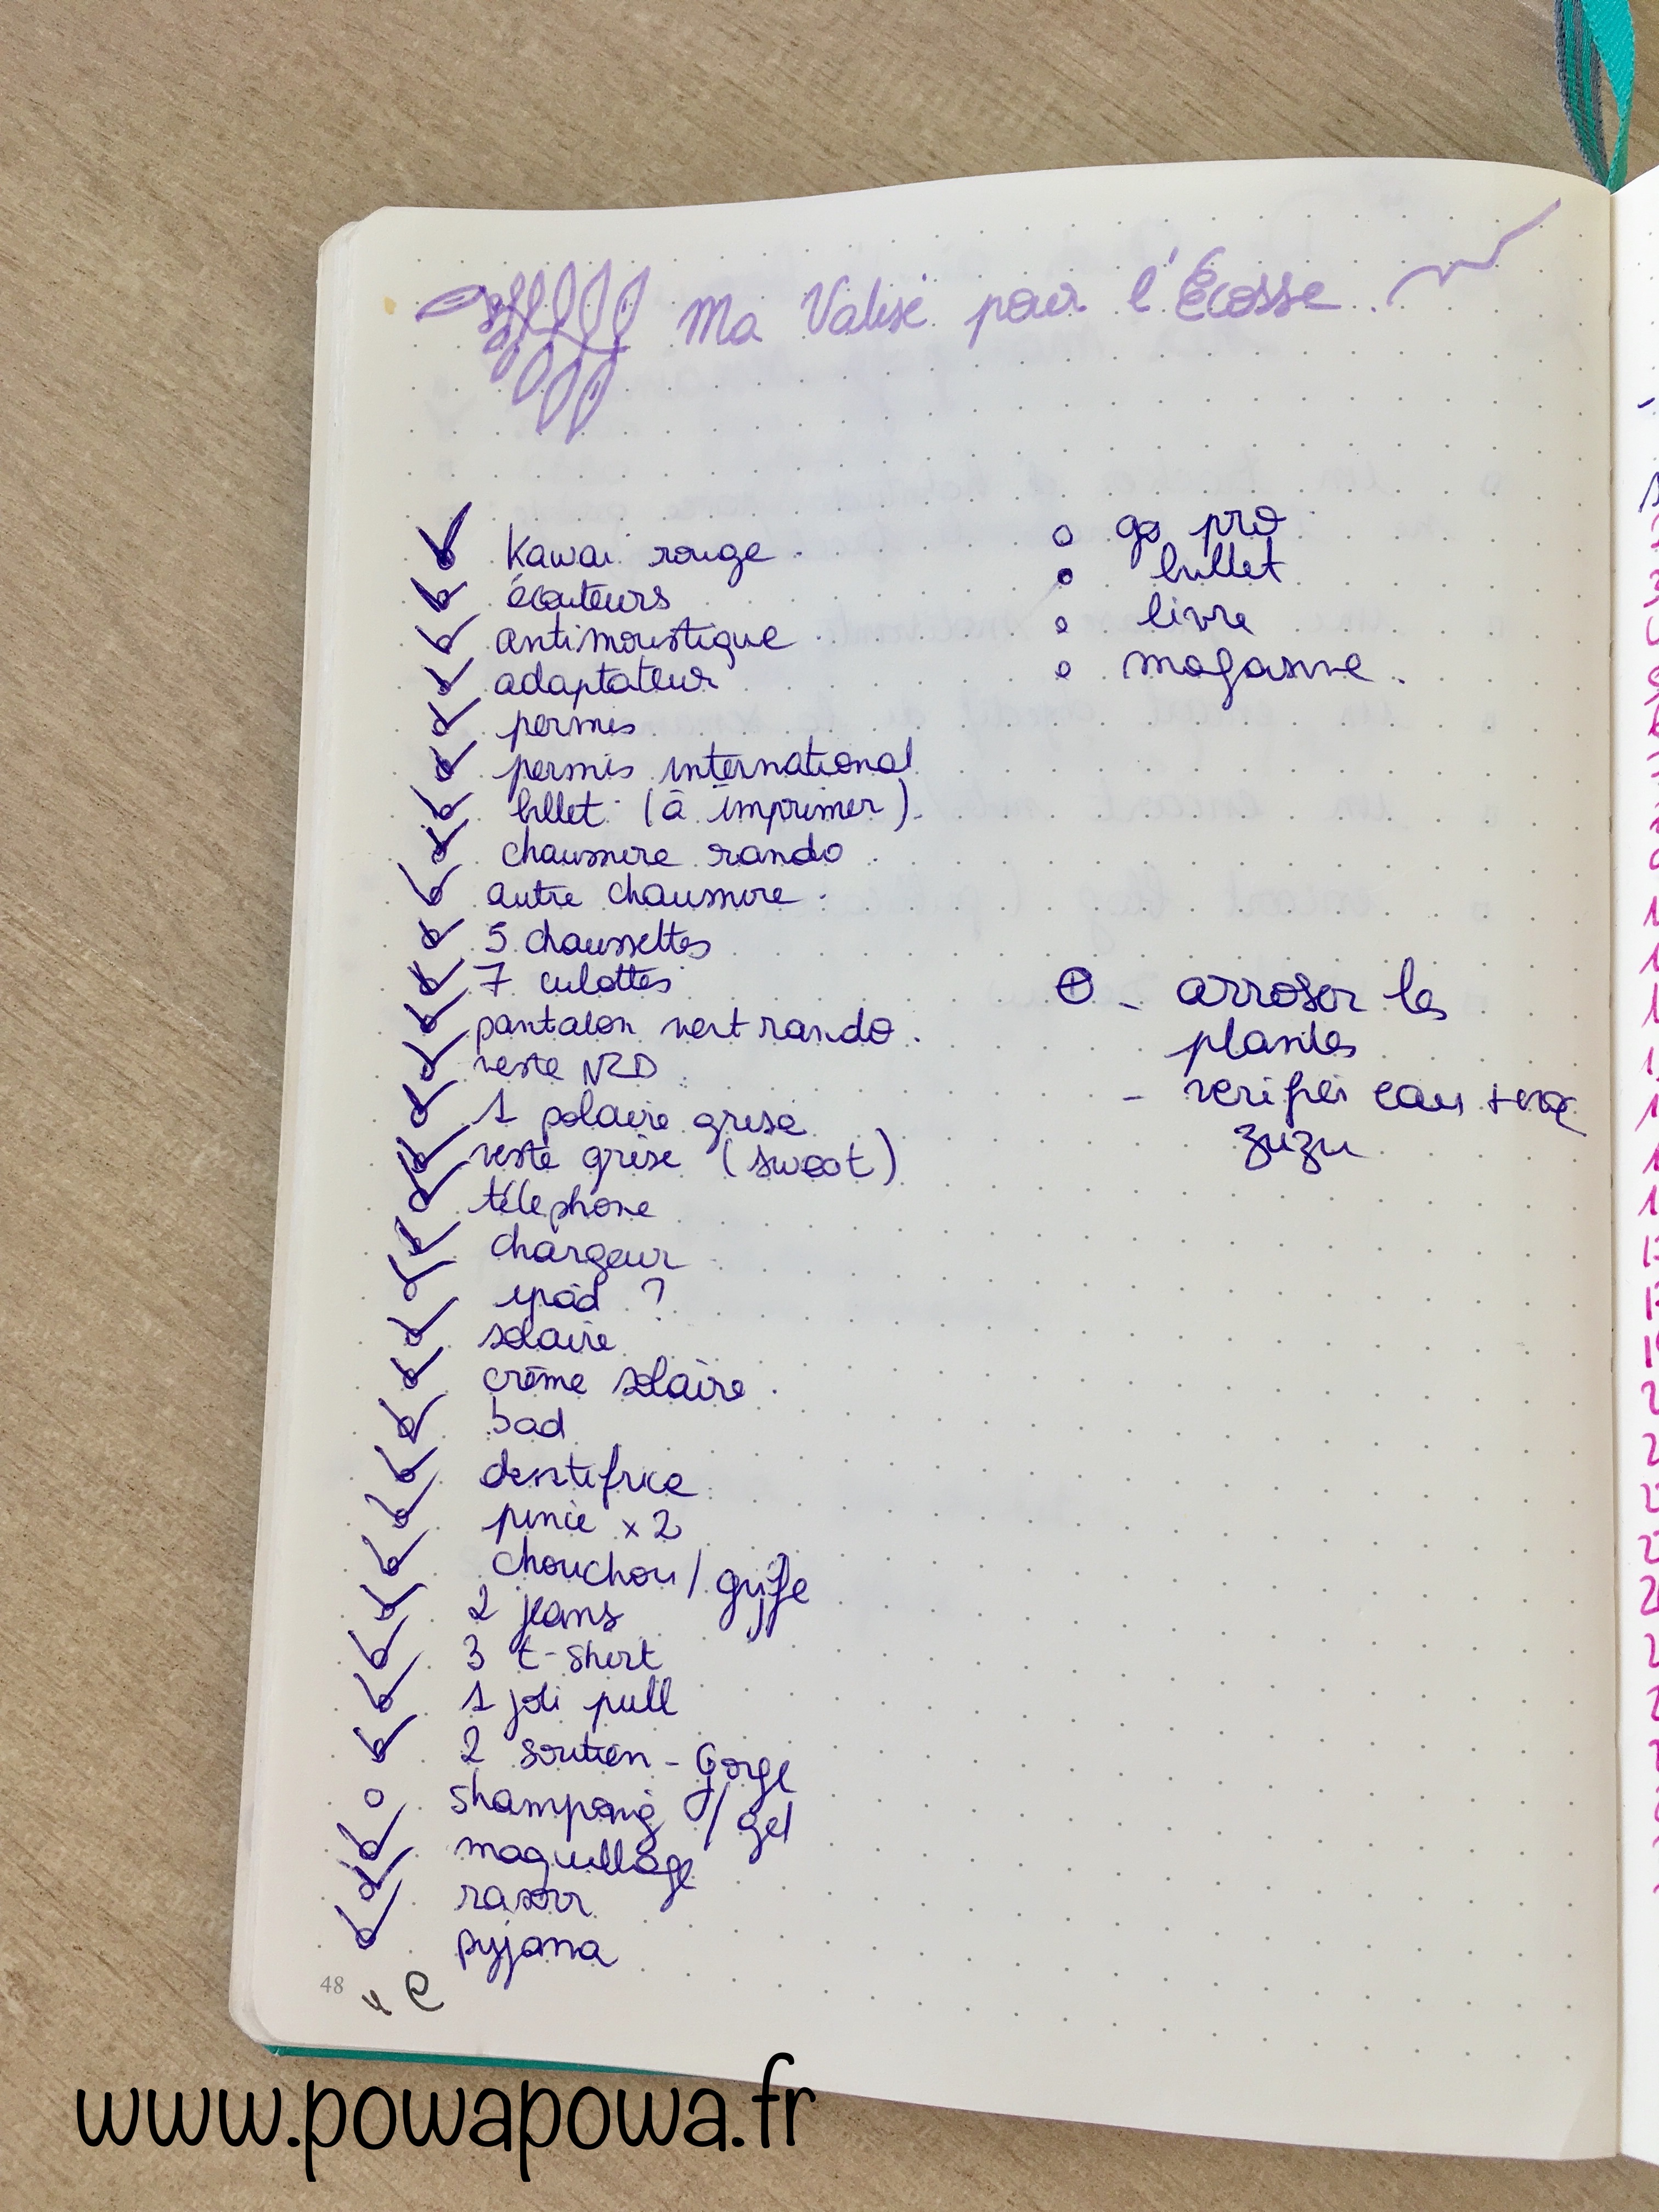 Ma Valise pour l'Écosse
Kawai rouge
écouteurs
antimoustique
adaptateur
permis
permis international
billet (à imprimer)
chaussure rando
autre chaussure
5 chaussettes
7 culottes
pantalon vert rando
veste NZD
1 polaire grise
veste grise (sweat)
téléphone
chargeur
ipad ?
solaire
crème solaire
bad
dentifrice
pince x2
chouchou / griffe
2 jeans
3 t-shirt
1 joli pull
2 soutien-Gorge
shampoing / gel
maquillage
rasoir
pyjama
48
go pro
billet
livre
magasine
- arroser les
plantes
- verifier eau
zuzu
www.powapowa.fr